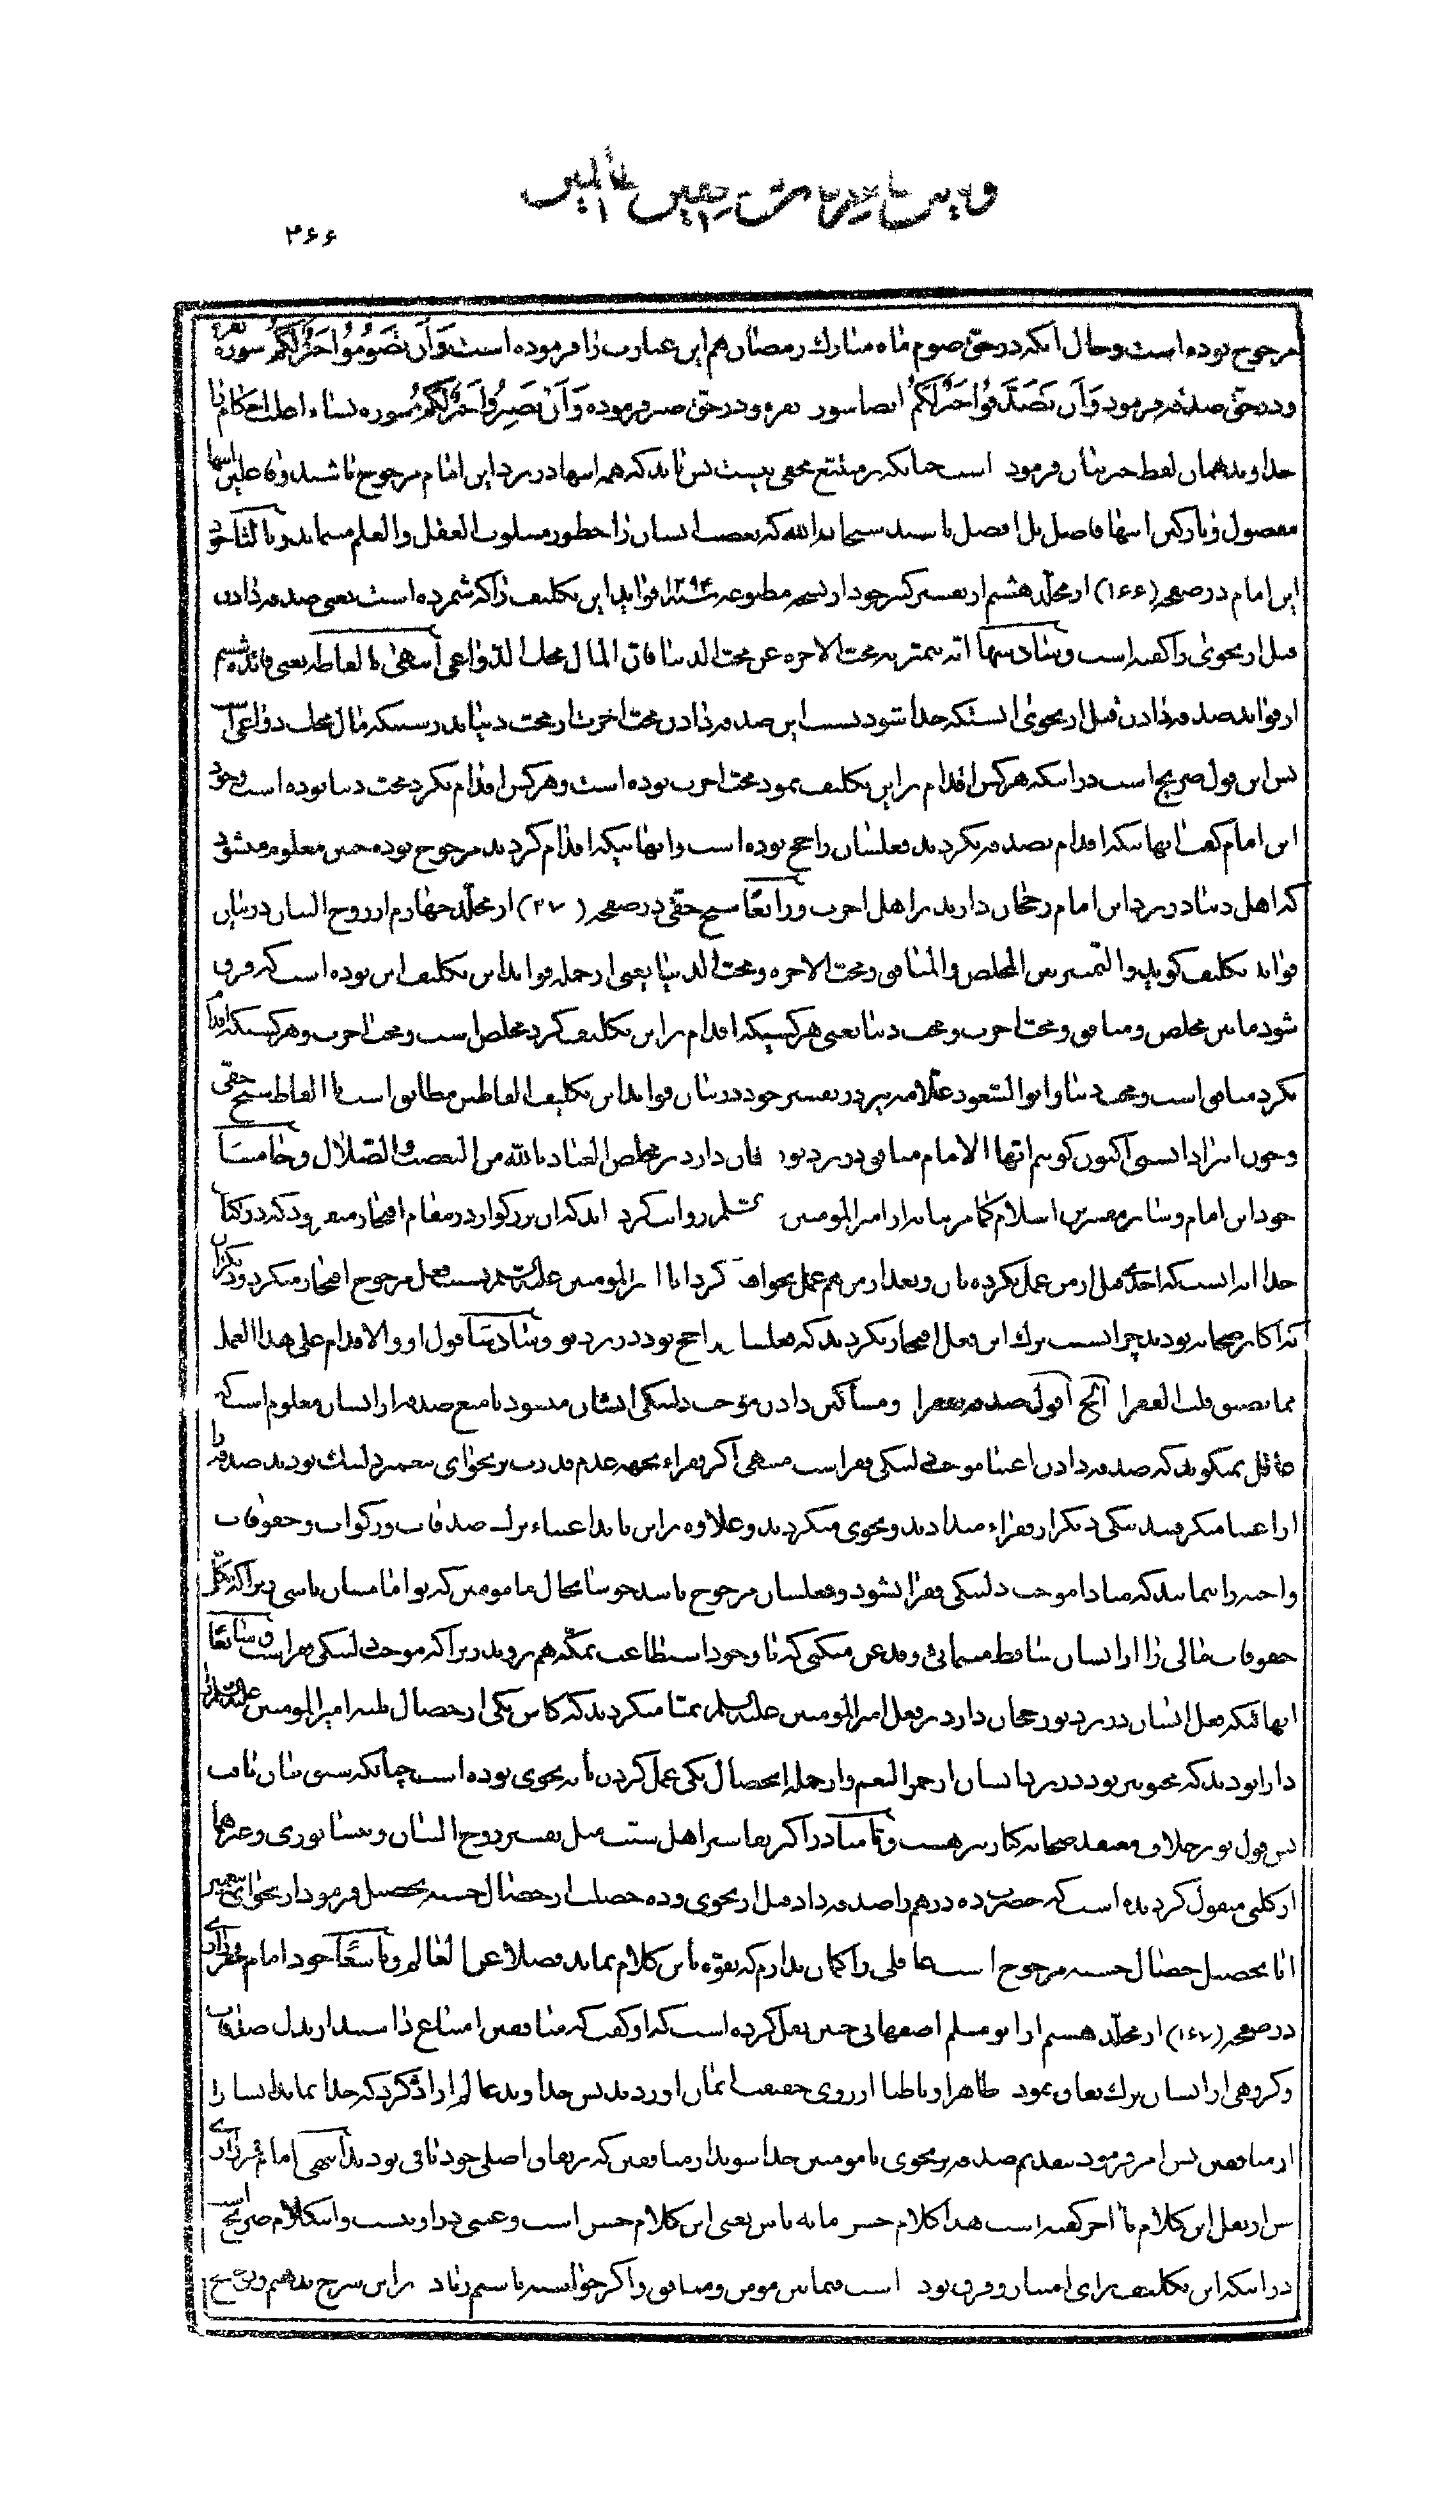 ۳۶۶
مرجوح بوده است و حال آنکه در حقّ صوم ماه مبارك رمضان هم این عبارت را فرموده است وَ اَنْ تَصُومُوا خَیْرٌ لَکُمْ سوره بقره
و در حقّ صدقه فرمود وَ اَنْ تَصَدَّقُوا خَیْرٌ لَکُمْ ایضا سوره بقره و در حقّ صبر فرموده وَ اَنْ تَصْبِرُوا خَیْرٌ لَکُمْ سوره نساء
خداوند همان لفظ خیر بیان فرموده است چنانکه بر متتبع مخفی نیست پس باید که همه اینها در نزد این امام مرجوح باشند و فاعلین اینها
مفضول و تارکین اینها فاضل بل افضل باشند سبحان الله که تعصب انسان را چطور مسلوب العقل و العلم مینماید و ثالثا خود
این امام در صفحه (۱۶۶) از مجلّد هشتم از تفسیر کبیر خود از نسخه مطبوعه سنه ۱۲۹۴ فواید این تکلیف را که شمرده است یعنی صدقه دادن
قبل از نجوی را گفته است و سادسها انه یتمیز به محبّ الاخره عن محبّ الدنیا فان المال محك الدّواعی انتهی بالفاظه یعنی فائده ششم
از فواید صدقه دادن قبل از نجوی اینستکه جدا شود بسبب این صدقه دادن محبّ اخرت از محبّ دنیا بدرستیکه مال محك دواعی است
پس این قول صریح است در اینکه هر کس اقدام بر این تکلیف نمود محبّ اخرت بوده است و هر کس اقدام نکرد محبّ دنیا بوده است و خود
این امام گفت انهائیکه اقدام بصدقه نکردند فعلشان راجح بوده است و انهائیکه اقدام کردند مرجوح بوده پس معلوم میشود
که اهل دنیا در نزد این امام رجحان دارند بر اهل اخرت و رابعًا شیخ حقّی در صفحه (۲۷) از مجلّد چهارم از روح البیان در بیان
فواید تکلیف گوید و التمییز بین المخلص و المنافق و محبّ الاخره و محبّ الدنیا یعنی از جمله فواید این تکلیف این بوده است که فرق
شود مابین مخلص و منافق و محبّ اخرت و محبّ دنیا یعنی هر کسیکه اقدام بر این تکلیف کرد مخلص است و محبّ اخرت و هر کسیکه اقدام
نکرد منافق است و محبّ دنیا و ابو السّعود علّامه نیز در تفسیر خود در بیان فواید این تکلیف الفاظش مطابق است با الفاظ شیخ حقّی
و چون اینرا دانستی اکنون گوئیم ایّها الامام منافق در نزد تو رجحان دارد بر مخلص العیاذ بالله من التعصّب و الضّلال و خامسًا
خود این امام و سایر مفسرین اسلام کما مرّ بیانه از امیر المؤمنین روایت کرده اند که ان بزرگوار در مقام افتخار میفرمود که در کتاب
خدا ایه ایست که احدی قبل از من عمل نکرده بان و بعد از من هم عمل نخواهد کرد ایا امیر المؤمنین علیه السّلام بسبب فعل مرجوح افتخار میکرد و دیگران
که اکابر صحابه بودند چرا بسبب ترك این فعل افتخار نکردند که فعلشان راجح بود در نزد تو و سادسًا قول او و الاقدام علی هذا العمل
مما یضیق قلب الفقراء الخ اقول صدقه بفقراء و مساکین دادن موجب دلتنگی ایشان میشود یا منع صدقه از ایشان معلوم است که
عاقل نمیگوید که صدقه دادن اغنیا موجب دلتنگی فقراست منتهی اگر فقراء بجهة عدم قدرت بر نجوای پیغمبر دلتنك بودند صدقه را
از اغنیا میگرفتند یکی دیگر از فقراء میدادند و نجوی میکردند و علاوه بر این باید اغنیاء ترك صدقات و زکوات و حقوقات
واجبه را نمایند که مبادا موجب دلتنگی فقرا نشود و فعلشان مرجوح باشد خوشا بحال مامومین که تو امامشان باشی زیرا که کل
حقوقات مالی را از ایشان ساقط مینمائی و قدغن میکنی که با وجود استطاعت بمکّه هم نروند زیرا که موجب دلتنگی فقراست و سابعًا
انهائیکه فعل ایشان در نزد تو رجحان دارد بر فعل امیر المؤمنین علیه السّلام تمنّا میکردند که کاش یکی از خصال ثلثه امیر المؤمنین علیه السلام را
دارا بودند که محبوبتر بود در نزد ایشان از حمر النعم و از جمله انخصال یکی عمل کردن بایه نجوی بوده است چنانکه سبق بیان یافت
پس قول تو بر خلاف معتقد صحابه کبار نیز هست و ثامنًا در اکثر تفاسیر اهل سنّت مثل تفسیر روح البیان و نیشابوری و غیرهما
از کلبی منقول گردیده است که حضرت ده درهم را صدقه داد قبل از نجوی و ده خصلت از خصال حسنه تحصیل فرمود از نجوای پیغمبر
ایا تحصیل خصال حسنه مرجوح است عاقلی را گمان ندارم که تفوّه باین کلام نماید فضلا عن العالم و تاسعًا خود امام فخر رازی
در صفحه (۱۶۷) از مجلّد هشتم از ابو مسلم اصفهانی چنین نقل کرده است که او گفت که منافقین امتناع داشتند از بذل صدقات
و گروهی از ایشان ترك نفاق نمود ظاهرا و باطنا از روی حقیقت ایمان اوردند پس خداوند عالم اراده کرد که جدا نماید ایشان را
از منافقین پس امر فرمود بتقدیم صدقه بر نجوی تا مومنین جدا شوند از منافقین که بر نفاق اصلی خود باقی بودند انتهی امام فخر رازی
پس از نقل این کلام تا اخر گفته است هذا کلام حسن ما به باس یعنی این کلام حسن است و عیبی در او نیست و اینکلام صریح است
در اینکه این تکلیف برای امتیاز و فرق بوده است فیمابین مومن و منافق و اگر خواسته باشیم زیاد بر این شرح بدهیم